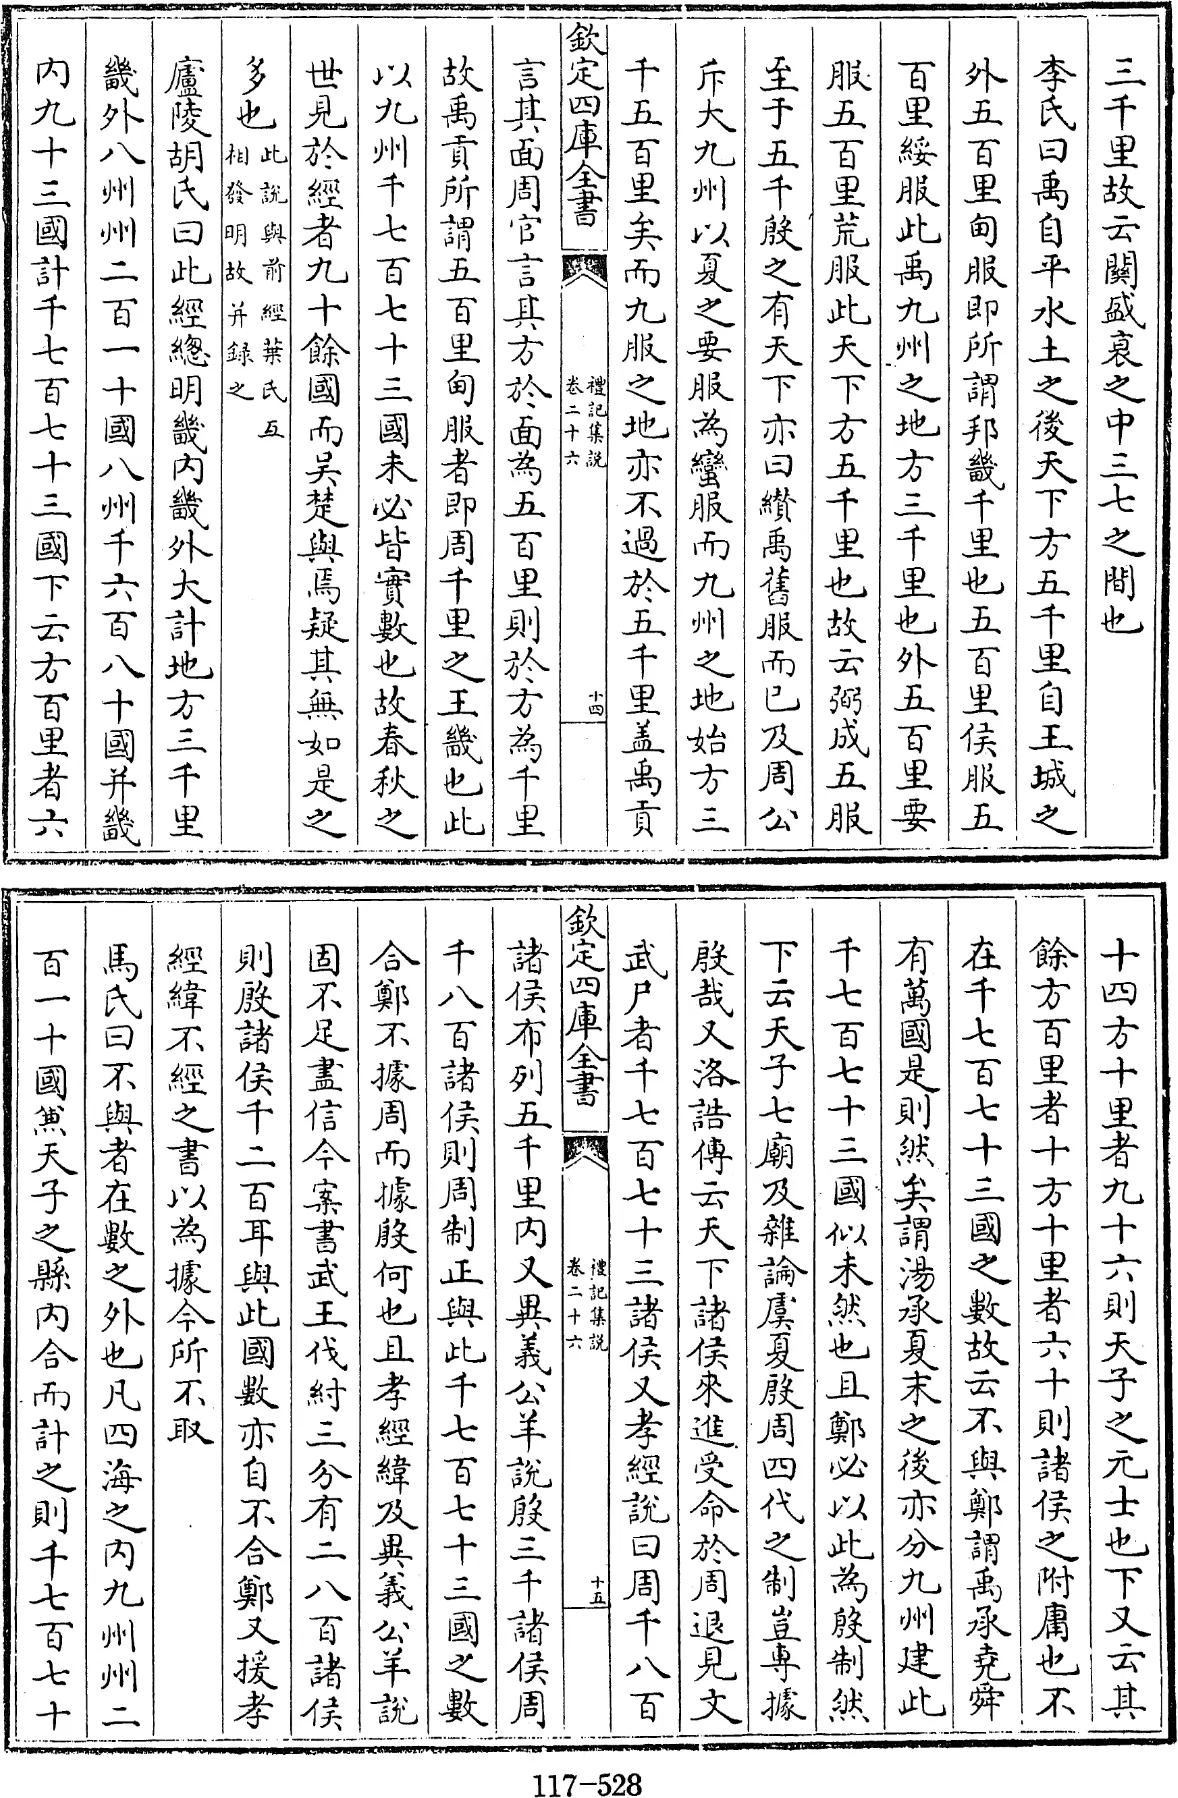 三千里故云關盛衰之中三七之間也
李氏曰禹自平水土之後天下方五千里自王城之
外五百里甸服即所謂邦畿千里也五百里侯服五
百里綏服此禹九州之地方三千里也外五百里要
服五百里荒服此天下方五千里也故云弼成五服
至于五千殷之有天下亦曰纘禹舊服而已及周公
斥大九州以夏之要服為蠻服而九州之地始方三
千五百里矣而九服之地亦不過於五千里盖禹貢
欽定四庫全書
禮記集説
卷二十六
十四
言其面周官言其方於面為五百里則於方為千里
故禹貢所謂五百里甸服者即周千里之王畿也此
以九州千七百七十三國未必皆實數也故春秋之
世見於經者九十餘國而吳楚與焉疑其無如是之
多也此説與前經葉氏互
相發明故并録之
廬陵胡氏曰此經總明畿内畿外大計地方三千里
畿外八州州二百一十國八州千六百八十國并畿
内九十三國計千七百七十三國下云方百里者六
十四方十里者九十六則天子之元士也下又云其
餘方百里者十方十里者六十則諸侯之附庸也不
在千七百七十三國之數故云不與鄭謂禹承堯舜
有萬國是則然矣謂湯承夏末之後亦分九州建此
千七百七十三國似未然也且鄭必以此為殷制然
下云天子七廟及雜論虞夏殷周四代之制豈專據
殷哉又洛誥傳云天下諸侯來進受命於周退見文
武尸者千七百七十三諸侯又孝經説曰周千八百
欽定四庫全書
禮記集説
卷二十六
十五
諸侯布列五千里内又異義公羊説殷三千諸侯周
千八百諸侯則周制正與此千七百七十三國之數
合鄭不據周而據殷何也且孝經緯及異義公羊説
固不足盡信今案書武王伐紂三分有二八百諸侯
則殷諸侯千二百耳與此國數亦自不合鄭又援孝
經緯不經之書以為據今所不取
馬氏曰不與者在數之外也凡四海之内九州州二
百一十國兼天子之縣内合而計之則千七百七十
117-528